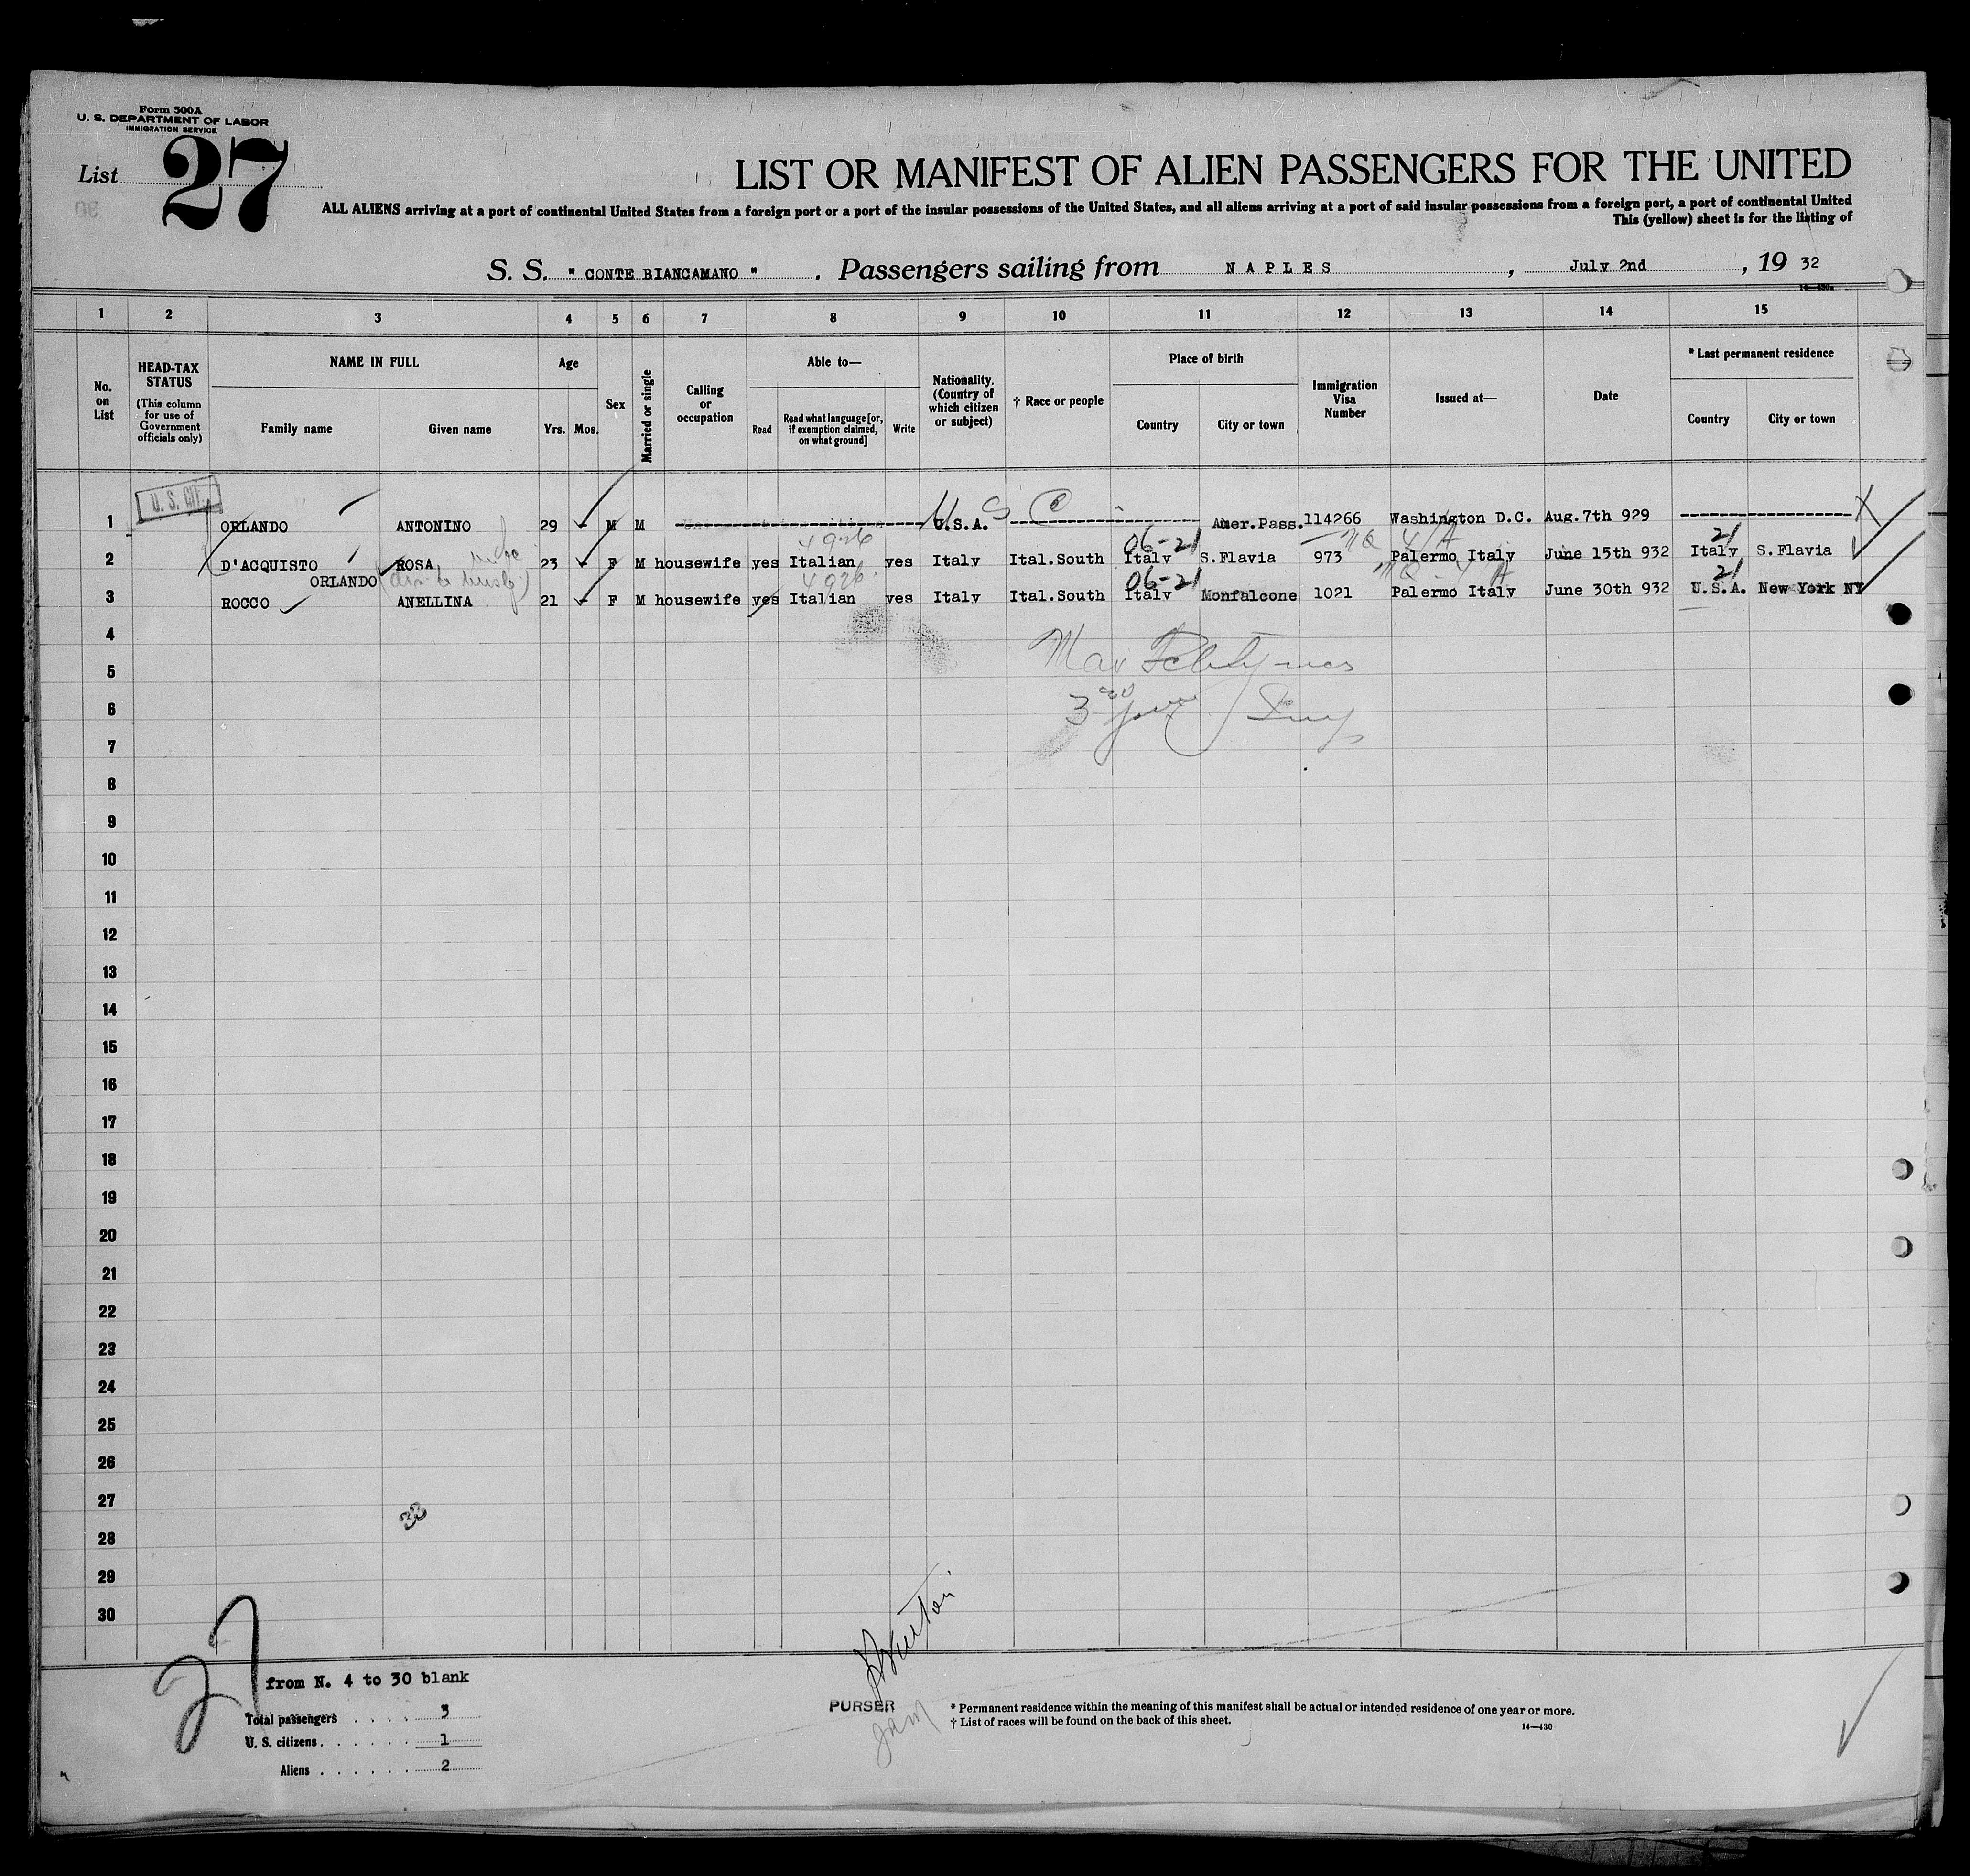 Form 500A
U. S. DEPARTMENT OF LABOR
IMMIGRATION SERVICE
List 27
LIST OR MANIFEST OF ALIEN PASSENGERS FOR THE UNITED
ALL ALIENS arriving at a port of continental United States from a foreign port or a port of the insular possessions of the United States, and all aliens arriving at a port of said insular possessions from a foreign port, a port of continental United
This (yellow) sheet is for the listing of
S. S. " CONTE BIANCAMANO " . Passengers sailing from NAPLES , July 2nd , 19 32
14—430
1 2 3 4 5 6 7 8 9 10 11 12 13 14 15
No. on List
HEAD-TAX STATUS (This column for use of Government officials only)
NAME IN FULL
Family name Given name
Age
Yrs. Mos.
Sex
Married or single
Calling or occupation
Able to—
Read Read what language [or, if exemption claimed, on what ground] Write
Nationality. (Country of which citizen or subject)
† Race or people
Place of birth
Country City or town
Immigration Visa Number
Issued at—
Date
* Last permanent residence
Country City or town
U. S. CIT.
U S C
1 ORLANDO ANTONINO 29 - M M U.S.A. Amer.Pass. 114266 Washington D.C. Aug.7th 929 X
4926 06-21 21
2 D'ACQUISTO ROSA 23 - F M housewife yes Italian yes Italy Ital.South Italy S.Flavia 973 Palermo Italy June 15th 932 Italy S.Flavia
ORLANDO 4926 06-21 21
3 ROCCO ANELLINA 21 - F M housewife yes Italian yes Italy Ital.South Italy Monfalcone 1021 Palermo Italy June 30th 932 U.S.A. New York NY
4
5
6
7
8
9
10
11
12
13
14
15
16
17
18
19
20
21
22
23
24
25
26
27
28
29
30
33
27
from N. 4 to 30 blank
Total passengers . . . . 3
U. S. citizens . . . . . . 1
Aliens . . . . . . 2
PURSER
* Permanent residence within the meaning of this manifest shall be actual or intended residence of one year or more.
† List of races will be found on the back of this sheet.
14—430